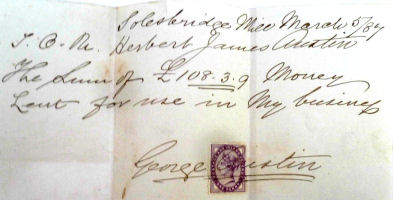 Solesbridge Mill March 5/87
I.O.U. Herbert James Austin
The Sum of £108.3.9 Money
Lent for use in My business
George Austin